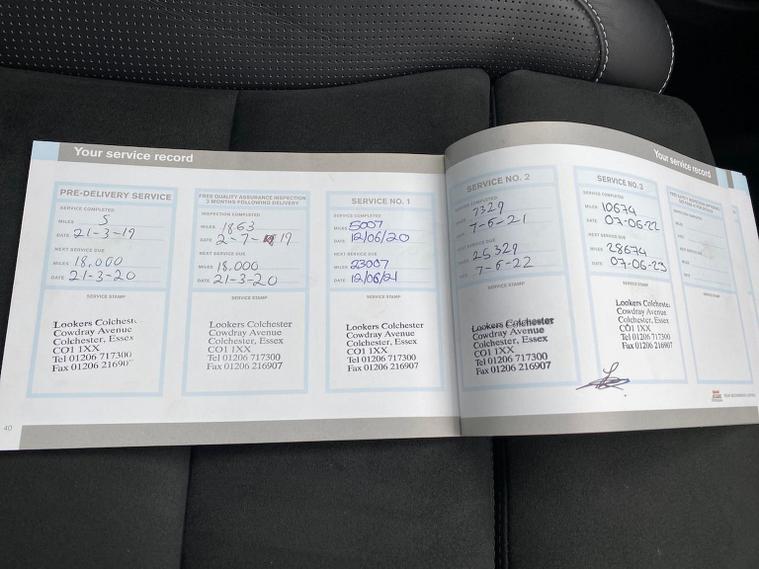 Your service record
PRE-DELIVERY SERVICE
SERVICE COMPLETED
MILES 5
DATE 21-3-19
NEXT SERVICE DUE
MILES 18,000
DATE 21-3-20
SERVICE STAMP
Lookers Colchester
Cowdray Avenue
Colchester, Essex
CO1 1XX
Tel 01206 717300
Fax 01206 21690
FREE QUALITY ASSURANCE INSPECTION
3 MONTHS FOLLOWING DELIVERY
INSPECTION COMPLETED
MILES 1863
DATE 2-7-19
NEXT SERVICE DUE
MILES 18,000
DATE 21-3-20
SERVICE STAMP
Lookers Colchester
Cowdray Avenue
Colchester, Essex
CO1 1XX
Tel 01206 717300
Fax 01206 216907
SERVICE NO. 1
SERVICE COMPLETED
MILES 5007
DATE 12/06/20
NEXT SERVICE DUE
MILES 23007
DATE 12/06/21
SERVICE STAMP
Lookers Colchester
Cowdray Avenue
Colchester, Essex
CO1 1XX
Tel 01206 717300
Fax 01206 216907
40
Your service record
SERVICE NO. 2
SERVICE COMPLETED
MILES 7329
DATE 7-6-21
NEXT SERVICE DUE
MILES 25,329
DATE 7-6-22
SERVICE STAMP
Lookers Colchester
Cowdray Avenue
Colchester, Essex
CO1 1XX
Tel 01206 717300
Fax 01206 216907
SERVICE NO. 3
SERVICE COMPLETED
MILES 10674
DATE 07-06-22
NEXT SERVICE DUE
MILES 28674
DATE 07-06-23
SERVICE STAMP
Lookers Colchester
Cowdray Avenue
Colchester, Essex
CO1 1XX
Tel 01206 717300
Fax 01206 216907
MILES
DATE
MILES
DATE
SERVICE STAMP